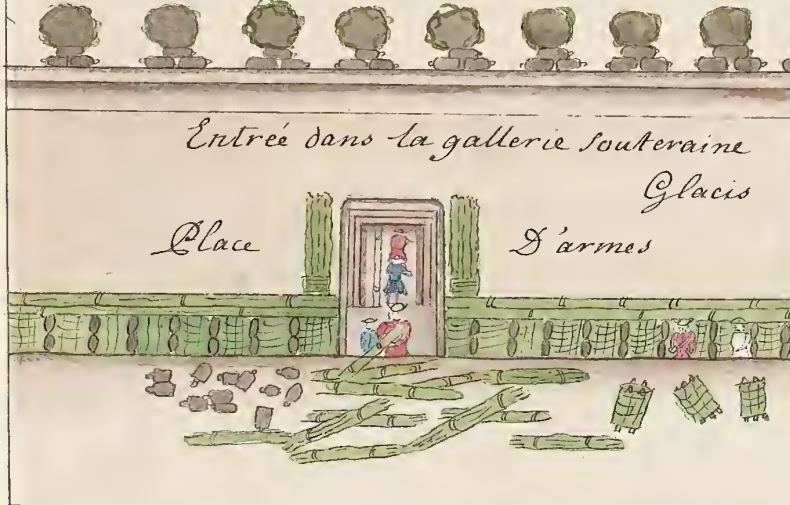 Entreé dans la gallerie souteraine
Glacis
Place D'armes